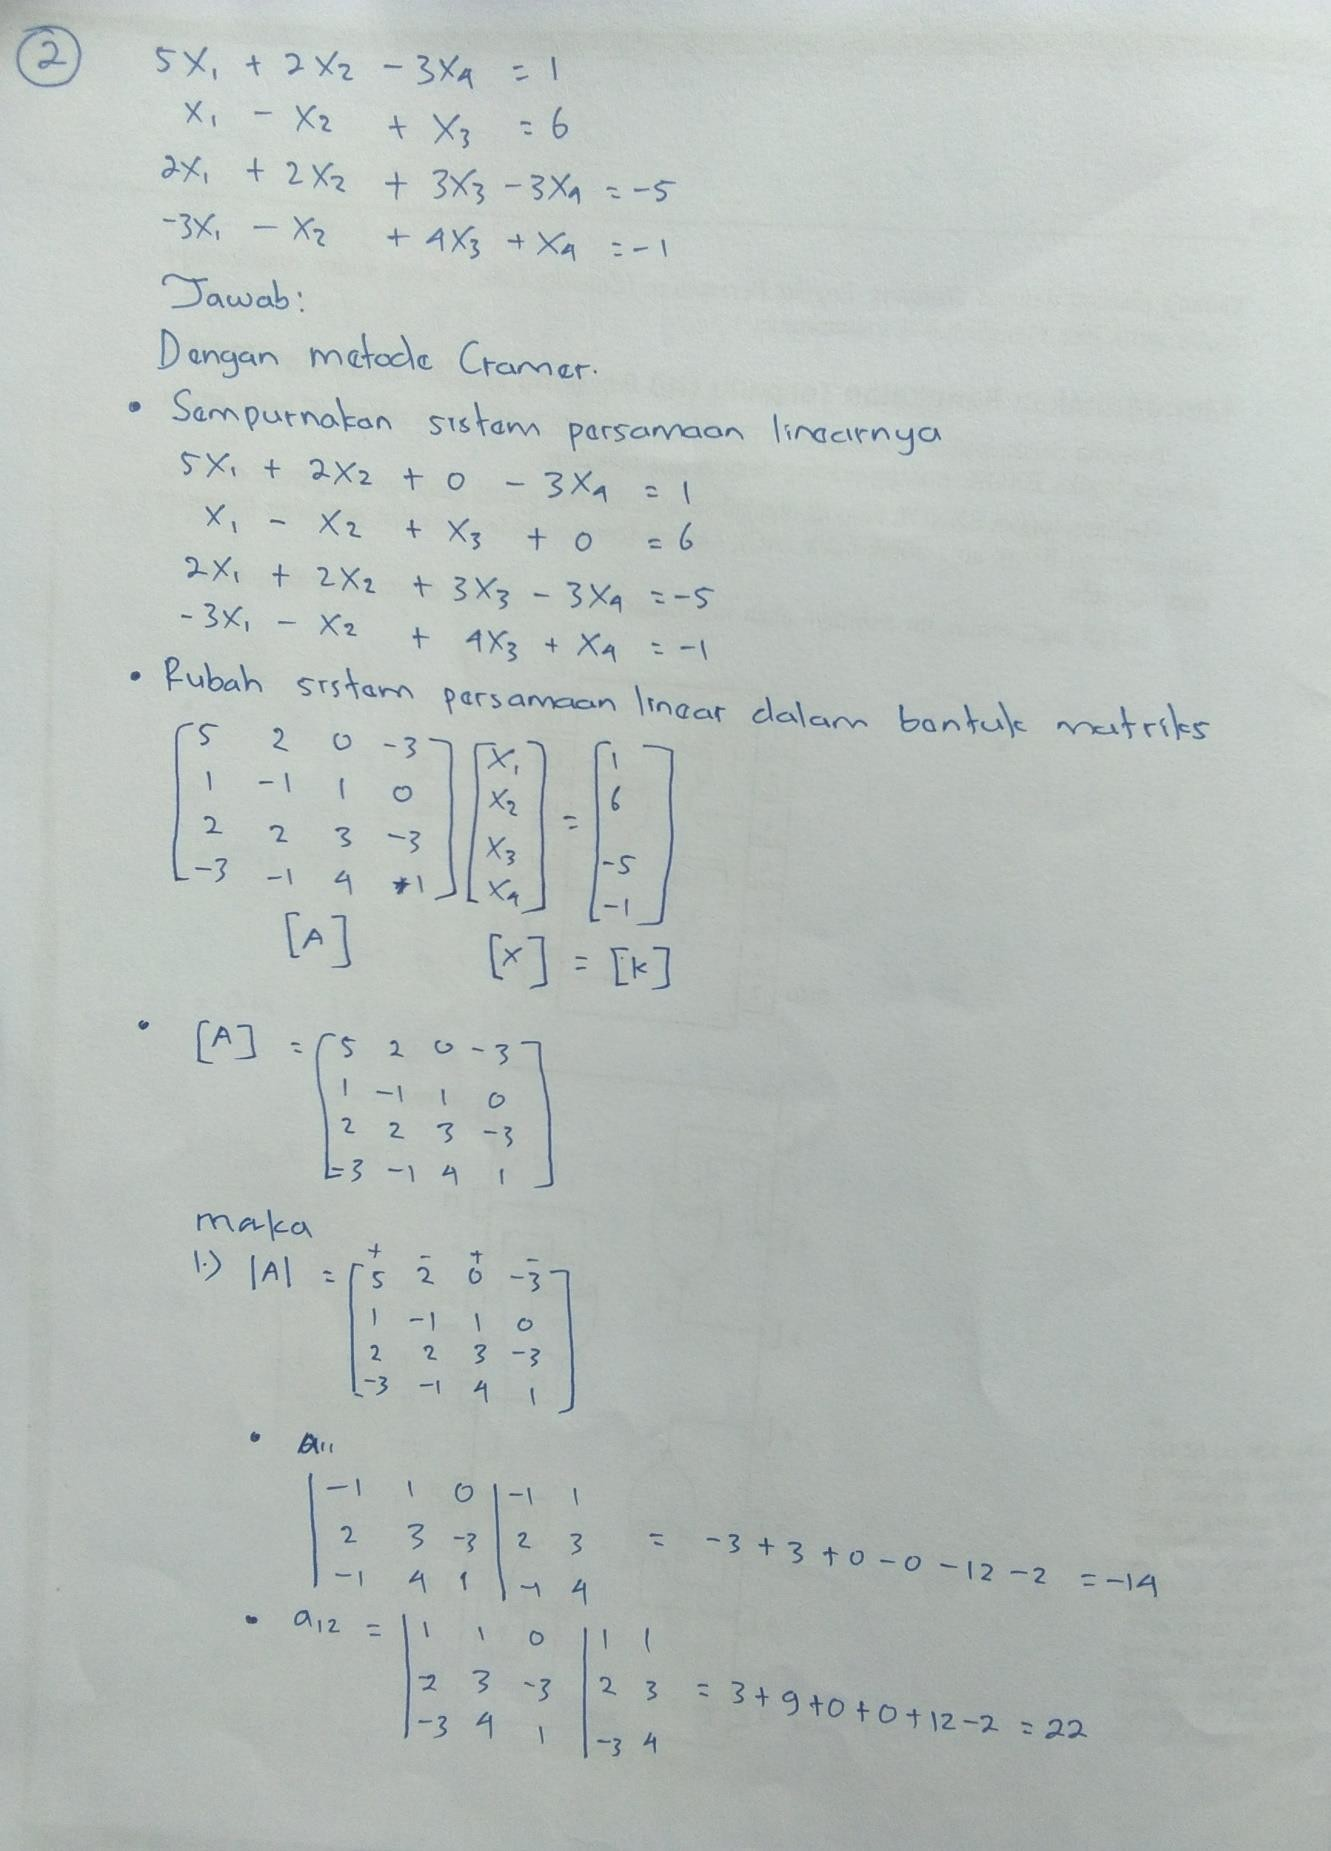 2
5X₁ + 2X₂ - 3X₄ = 1
X₁ - X₂ + X₃ = 6
2X₁ + 2X₂ + 3X₃ - 3X₄ = -5
-3X₁ - X₂ + 4X₃ + X₄ = -1
Jawab:
Dengan metode Cramer.
• Sempurnakan sistem persamaan linearnya
5X₁ + 2X₂ + 0 - 3X₄ = 1
X₁ - X₂ + X₃ + 0 = 6
2X₁ + 2X₂ + 3X₃ - 3X₄ = -5
-3X₁ - X₂ + 4X₃ + X₄ = -1
• Rubah sistem persamaan linear dalam bentuk matriks
5 2 0 -3 X₁ 1
1 -1 1 0 X₂ 6
2 2 3 -3 X₃ = -5
-3 -1 4 1 X₄ -1
[A] [X] = [K]
• [A] = 5 2 0 -3
1 -1 1 0
2 2 3 -3
-3 -1 4 1
maka
+ - + -
1.) |A| = 5 2 0 -3
1 -1 1 0
2 2 3 -3
-3 -1 4 1
• a₁₁
-1 1 0 | -1 1
2 3 -3 | 2 3 = -3 + 3 + 0 - 0 - 12 - 2 = -14
-1 4 1 | -1 4
• a₁₂ = | 1 1 0 | 1 1
2 3 -3 | 2 3 = 3 + 9 + 0 + 0 + 12 - 2 = 22
-3 4 1 | -3 4